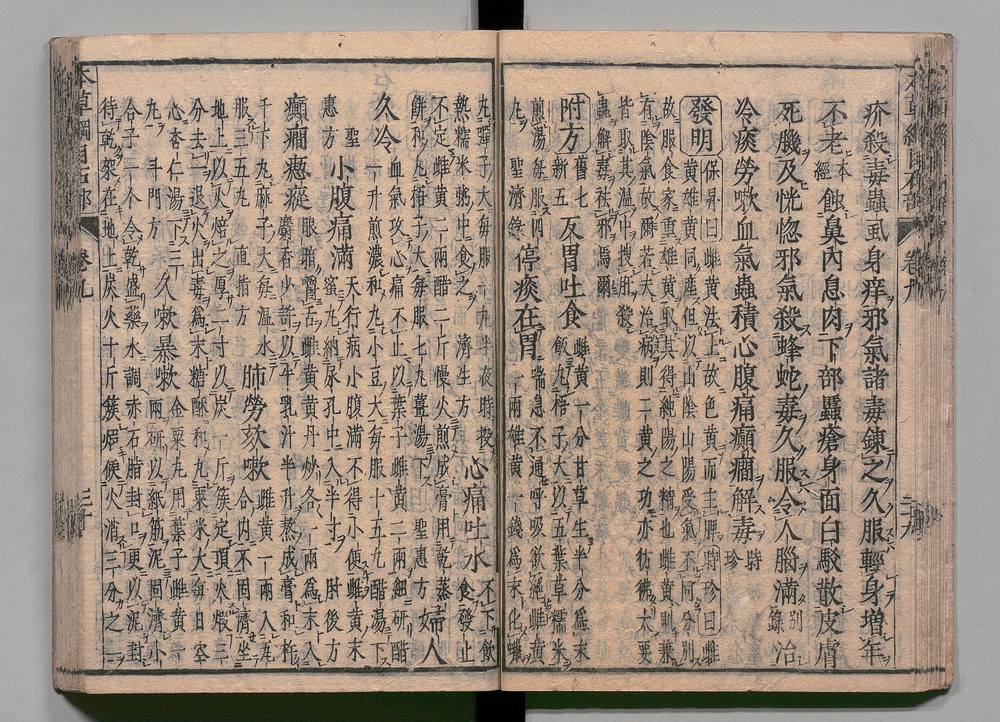 疥殺毒蟲虱身痒邪氣諸毒鍊之久服輕身增年
不老本經蝕鼻內息肉下部䘌瘡身面白駁散皮膚
死肌及恍惚邪氣殺蜂蛇毒久服令人腦滿別錄治
冷痰勞嗽血氣蟲積心腹痛癲癇解毒時珍
發明保昇曰雌黃法土故色黃而主脾時珍曰雌
黃雄黃同產但以山陰山陽受氣不同分別
故服食家重雄黃取其得純陽之精也雌黃則兼
有陰氣故爾若夫治病則二黃之功亦彷彿大要
皆取其溫中搜肝殺
蟲解毒祛邪焉爾
附方舊七新五反胃吐食雌黃一分甘草生半分爲末
飯丸梧子大以五葉草糯米
煎湯每服四
丸聖濟錄停痰在胃喘息不通呼吸欲絕雌黃
一兩雄黃一錢爲末化蠟
丸彈子大每服一丸半夜時投
熱糯米粥中食之濟生方心痛吐水不下飲食發止
不定雌黃二兩醋二斤慢火煎成膏用乾蒸
餅和丸梧子大每服七丸薑湯下聖惠方婦人
久冷血氣攻心痛不止以葉子雌黃二兩細研醋
一升煎濃和丸小豆大每服十五丸醋湯下
聖惠方小腹痛滿天行病小腹滿不得小便雌黃末
蜜丸納尿孔中入半寸肘後方
癲癇瘛瘲眼暗嚼舌雌黃黃丹炒各一兩爲末入
麝香少許以牛乳汁半升蒸成膏和杵
千下丸麻子大每溫水
服三五丸直指方肺勞欬嗽雌黃一兩入瓦
合內不固濟坐
地上以灰培之厚二寸以炭一斤簇定頂火煅三
分去一退火出毒爲末糖酥和丸粟米大每日空
心杏仁湯下三
丸斗門方久嗽暴嗽金粟丸用葉子雌黃一
兩研以紙筋泥固濟小
合子一个令乾盛藥水調赤石脂封口更以泥封
待乾架在地上炭火十斤簇煅候火消三分之一
本草綱目石部卷九三十